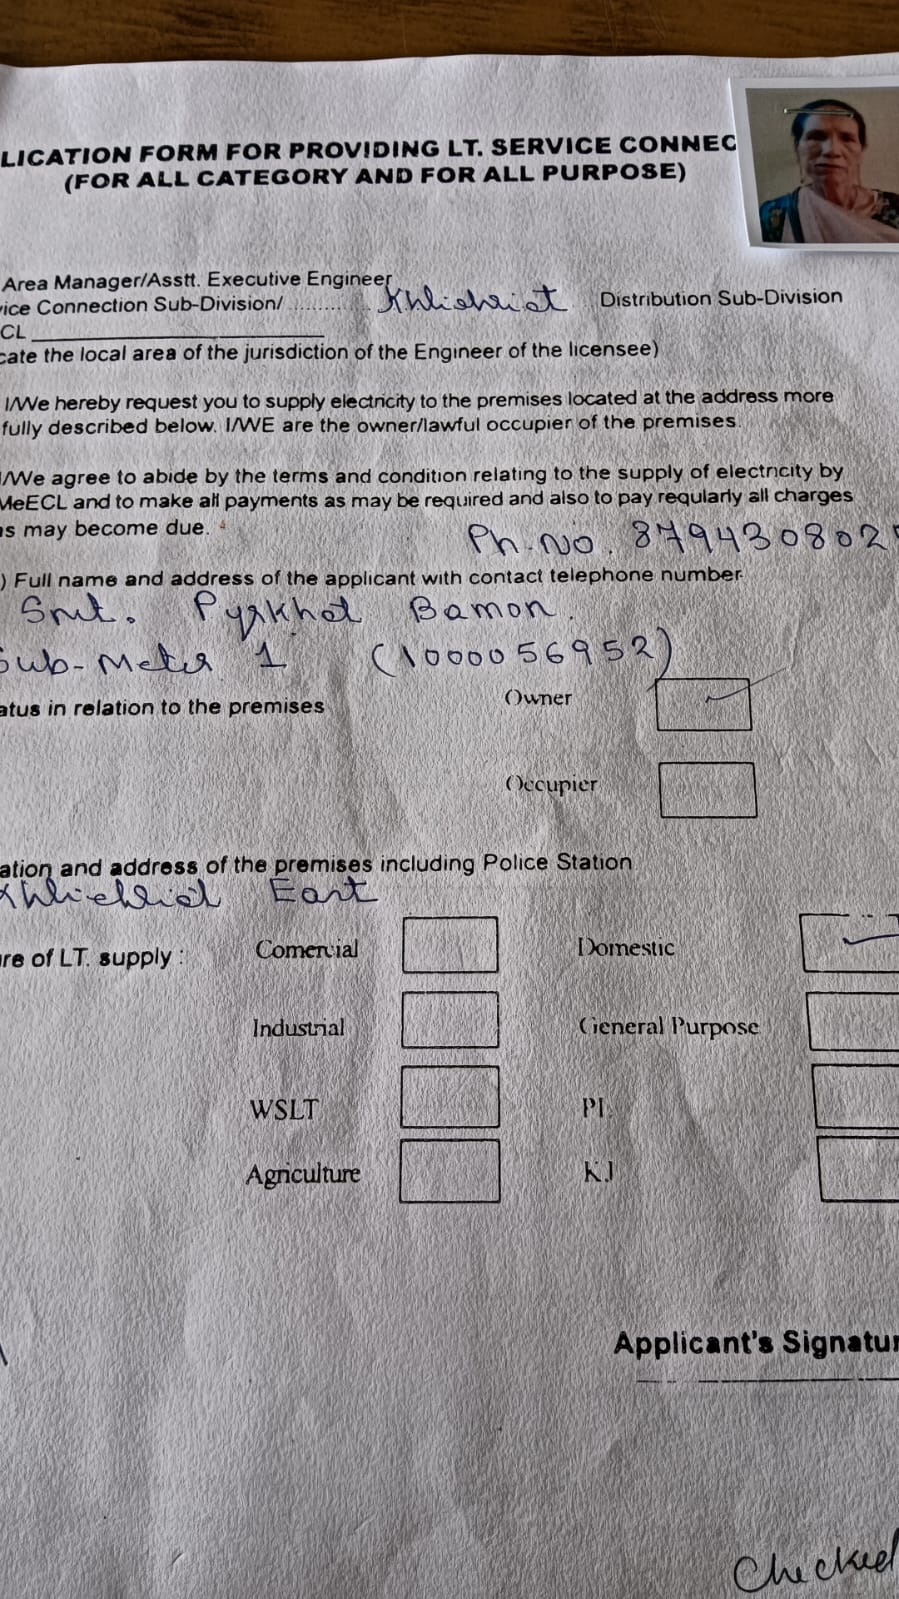 LICATION FORM FOR PROVIDING LT. SERVICE CONNEC
(FOR ALL CATEGORY AND FOR ALL PURPOSE)
Area Manager/Asstt. Executive Engineer
ice Connection Sub-Division/ ........... Khliehriat Distribution Sub-Division
CL
cate the local area of the jurisdiction of the Engineer of the licensee)
I/We hereby request you to supply electricity to the premises located at the address more
fully described below. I/WE are the owner/lawful occupier of the premises.
I/We agree to abide by the terms and condition relating to the supply of electricity by
MeECL and to make all payments as may be required and also to pay regularly all charges
as may become due.
Ph. No. 879430802
) Full name and address of the applicant with contact telephone number
Smt. Pyrkhat Bamon.
Sub-Meter 1 (1000056952)
atus in relation to the premises Owner
Occupier
ation and address of the premises including Police Station
Khliehriat East
re of LT. supply : Comercial Domestic
Industrial General Purpose
WSLT PL
Agriculture KJ
Applicant's Signatur
Checked